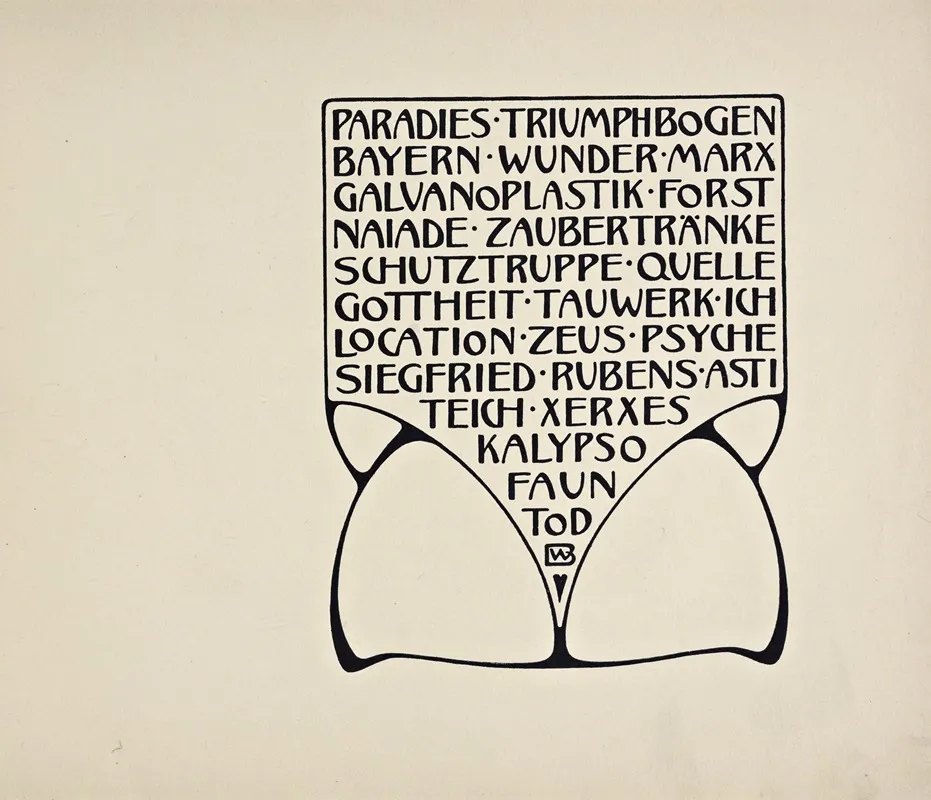 PARADIES·TRIUMPHBOGEN
BAYERN·WUNDER·MARX
GALVANOPLASTIK·FORST
NAIADE·ZAUBERTRÄNKE
SCHUTZTRUPPE·QUELLE
GOTTHEIT·TAUWERK·ICH
LOCATION·ZEUS·PSYCHE
SIEGFRIED·RUBENS·ASTI
TEICH·XERXES
KALYPSO
FAUN
TOD